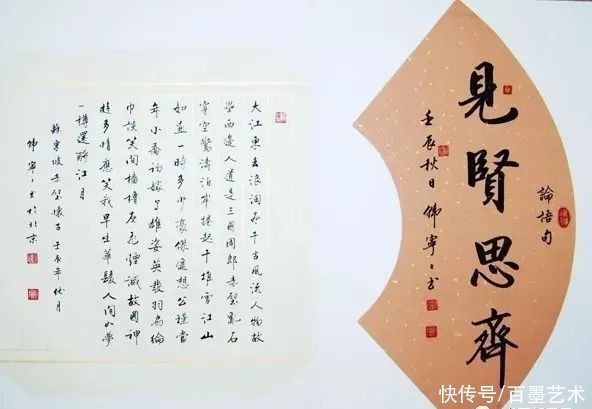 論語句
見賢思齊
壬辰秋日韓寧〻書
大江東去浪淘盡千古風流人物故
壘西邊人道是三國周郎赤壁亂石
穿空驚濤拍岸捲起千堆雪江山
如畫一時多少豪傑遙想公瑾當
年小喬初嫁了雄姿英發羽扇綸
巾談笑間檣櫓灰飛煙滅故國神
遊多情應笑我早生華髮人間如夢
一樽還酹江月
蘇東坡赤壁懷古 壬辰年秋月
韓寧〻書於北京
快传号/百墨艺术